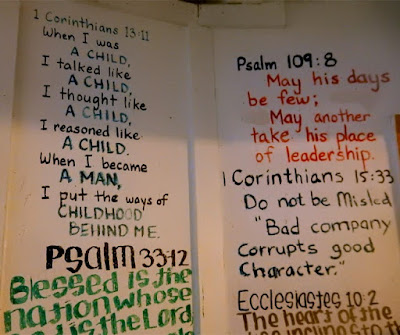 1 Corinthians 13:11
When I was
A CHILD,
I talked like
A CHILD,
I thought like
A CHILD,
I reasoned like
A CHILD.
When I became
A MAN,
I put the ways of
CHILDHOOD
BEHIND ME.
Psalm 33:12
Blessed is the
nation whose
is the Lord
Psalm 109:8
May his days
be few;
May another
take his place
of leadership.
1 Corinthians 15:33
Do not be Misled
"Bad company
Corrupts good
Character."
Ecclesiastes 10:2
The heart of the